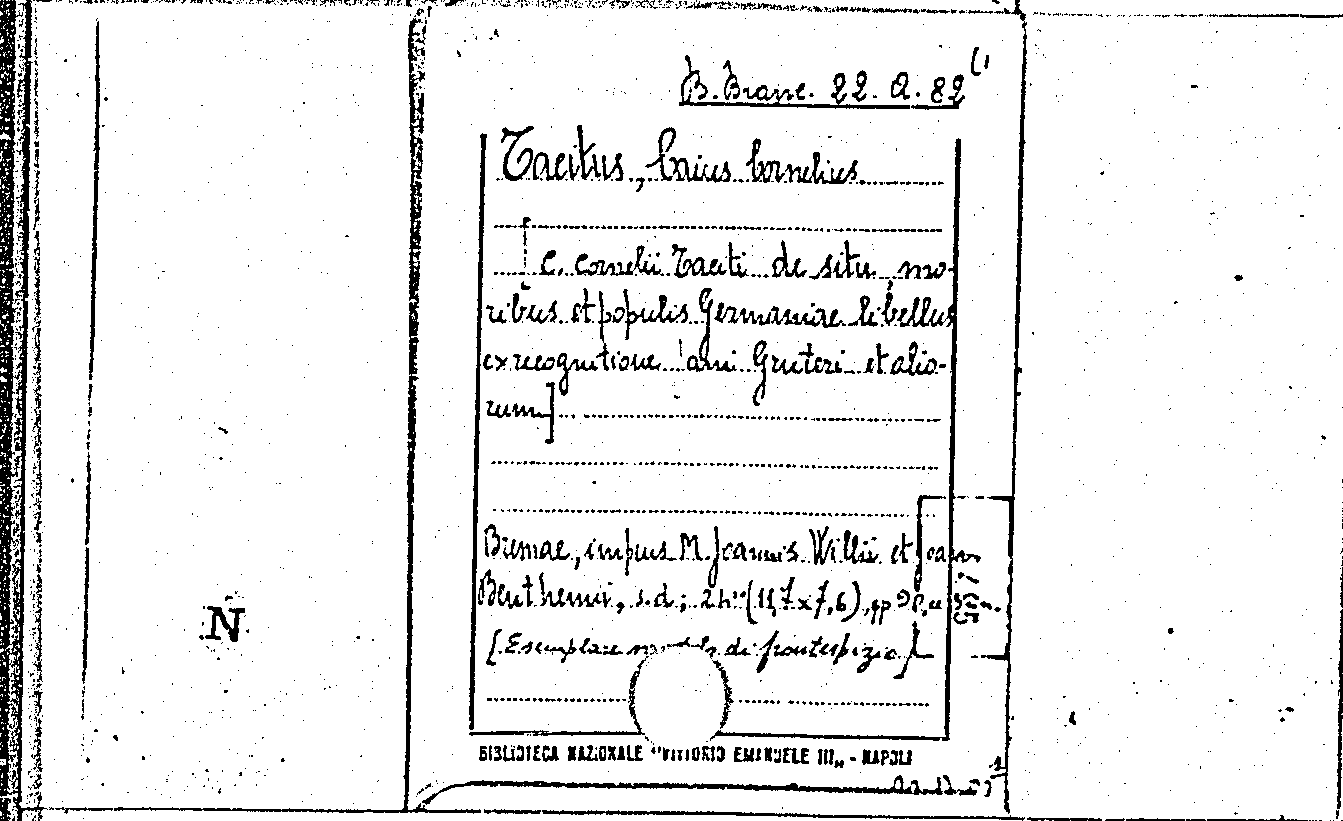 B. Branc. 22. A. 82 (1
Tacitus, Caius Cornelius
[C. Cornelii Taciti de situ mo-
ribus et populis Germaniae libellus
ex recognitione Jani Gruteri et alio-
rum]
Bremae, impens M. Joannis Willii et Joann
Benthemii, s.d.; 24° (11,7 x 7,6), pp
[Esemplare di frontespizio]
N
BIBLIOTECA NAZIONALE "VITTORIO EMANUELE III„ - NAPOLI